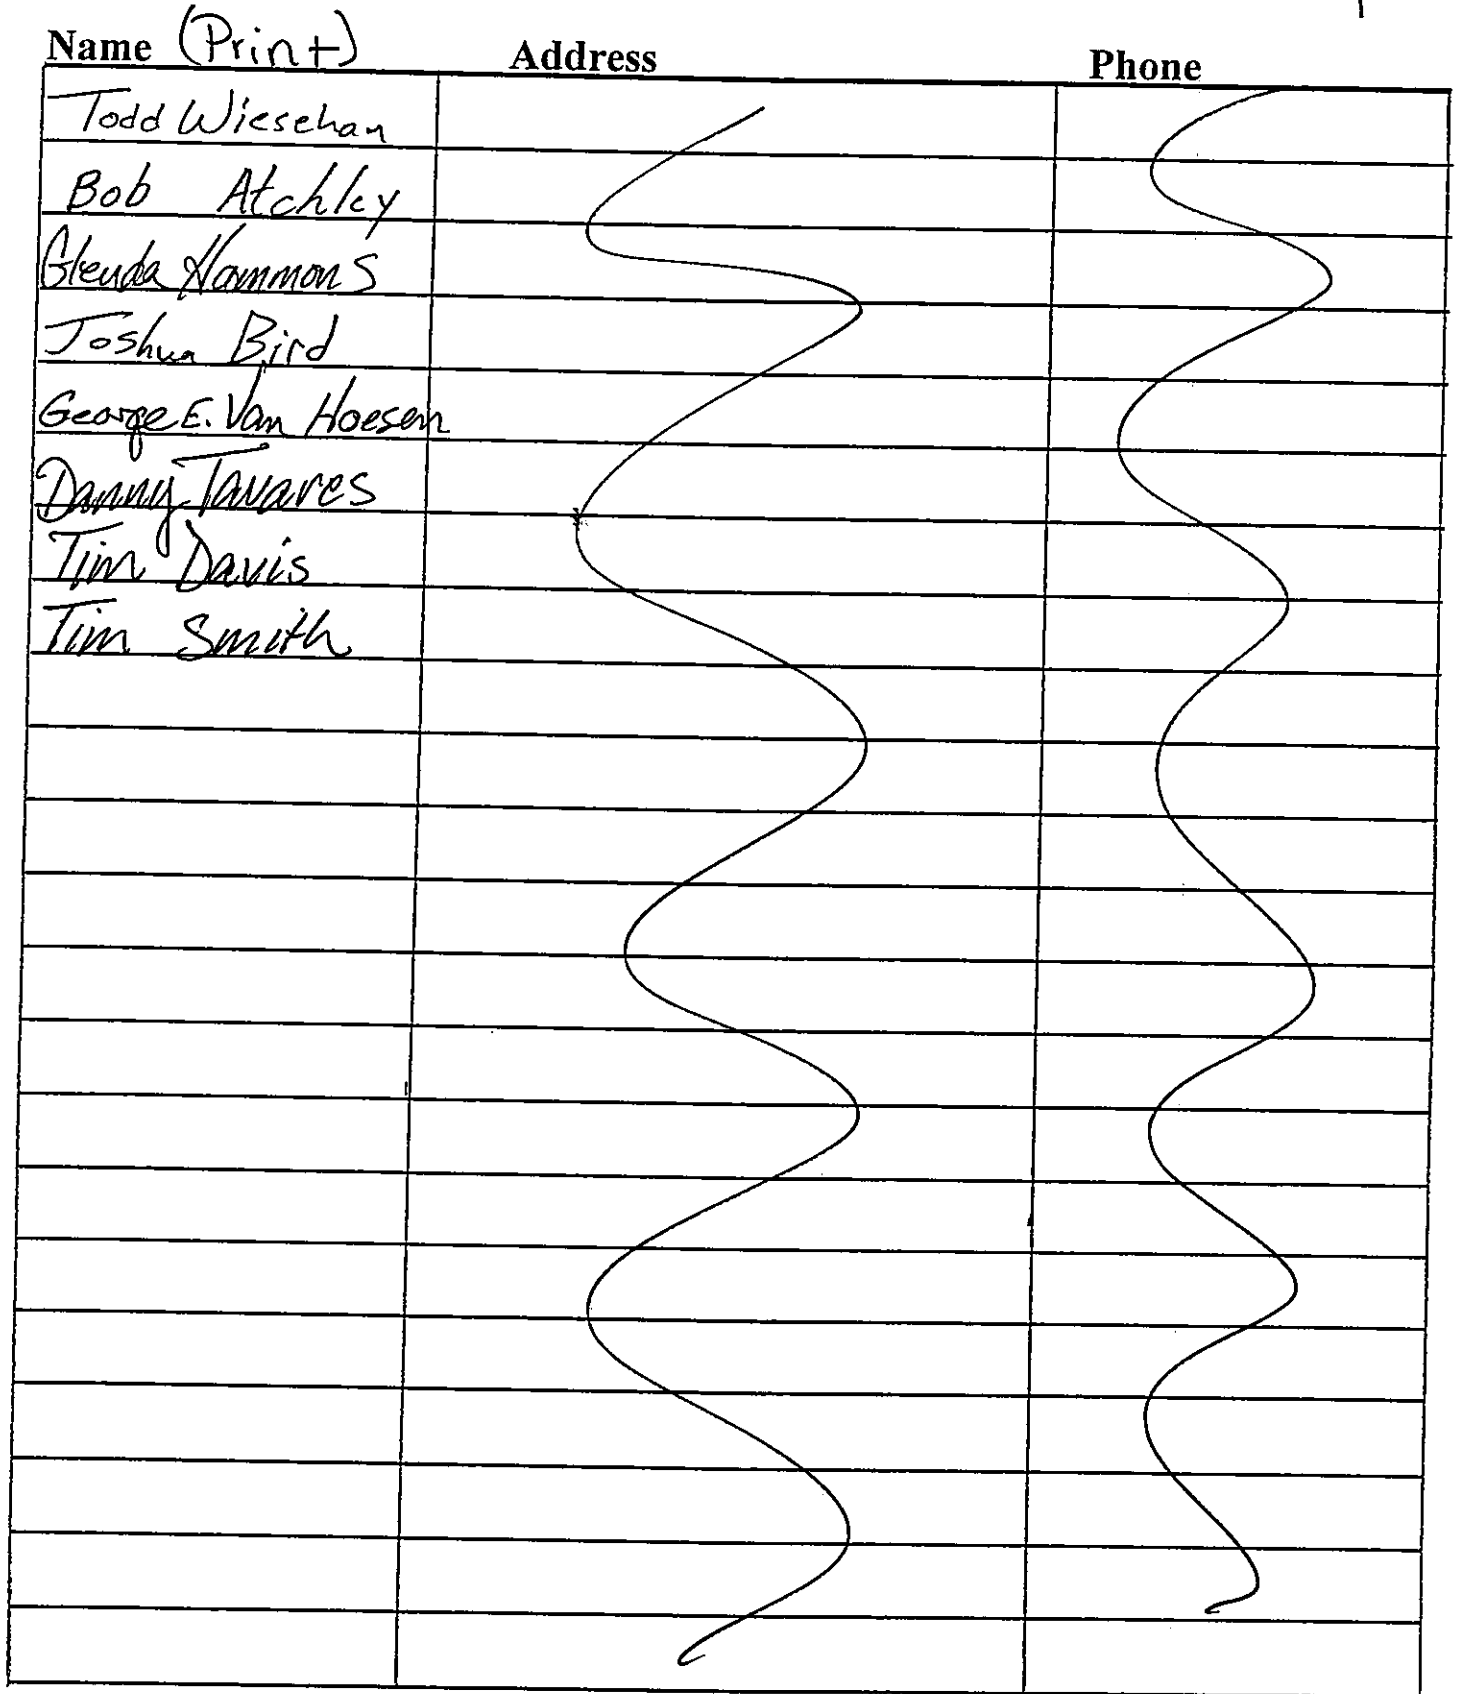 Name (Print) Address Phone
Todd Wiesehan
Bob Atchley
Glenda Hammons
Joshua Bird
George E. Van Hoesen
Danny Tavares
Tim Davis
Tim Smith